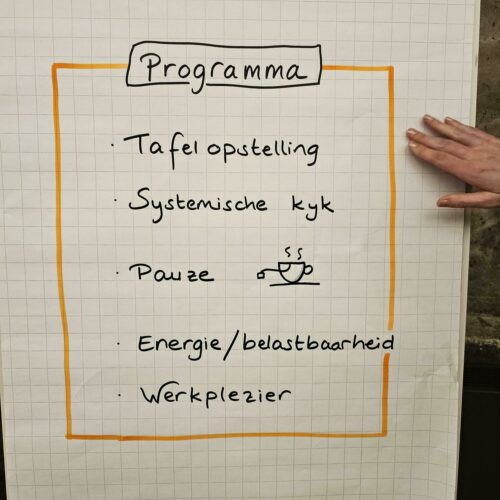 Programma
· Tafelopstelling
· Systemische kyk
· Pauze
· Energie/belastbaarheid
· Werkplezier